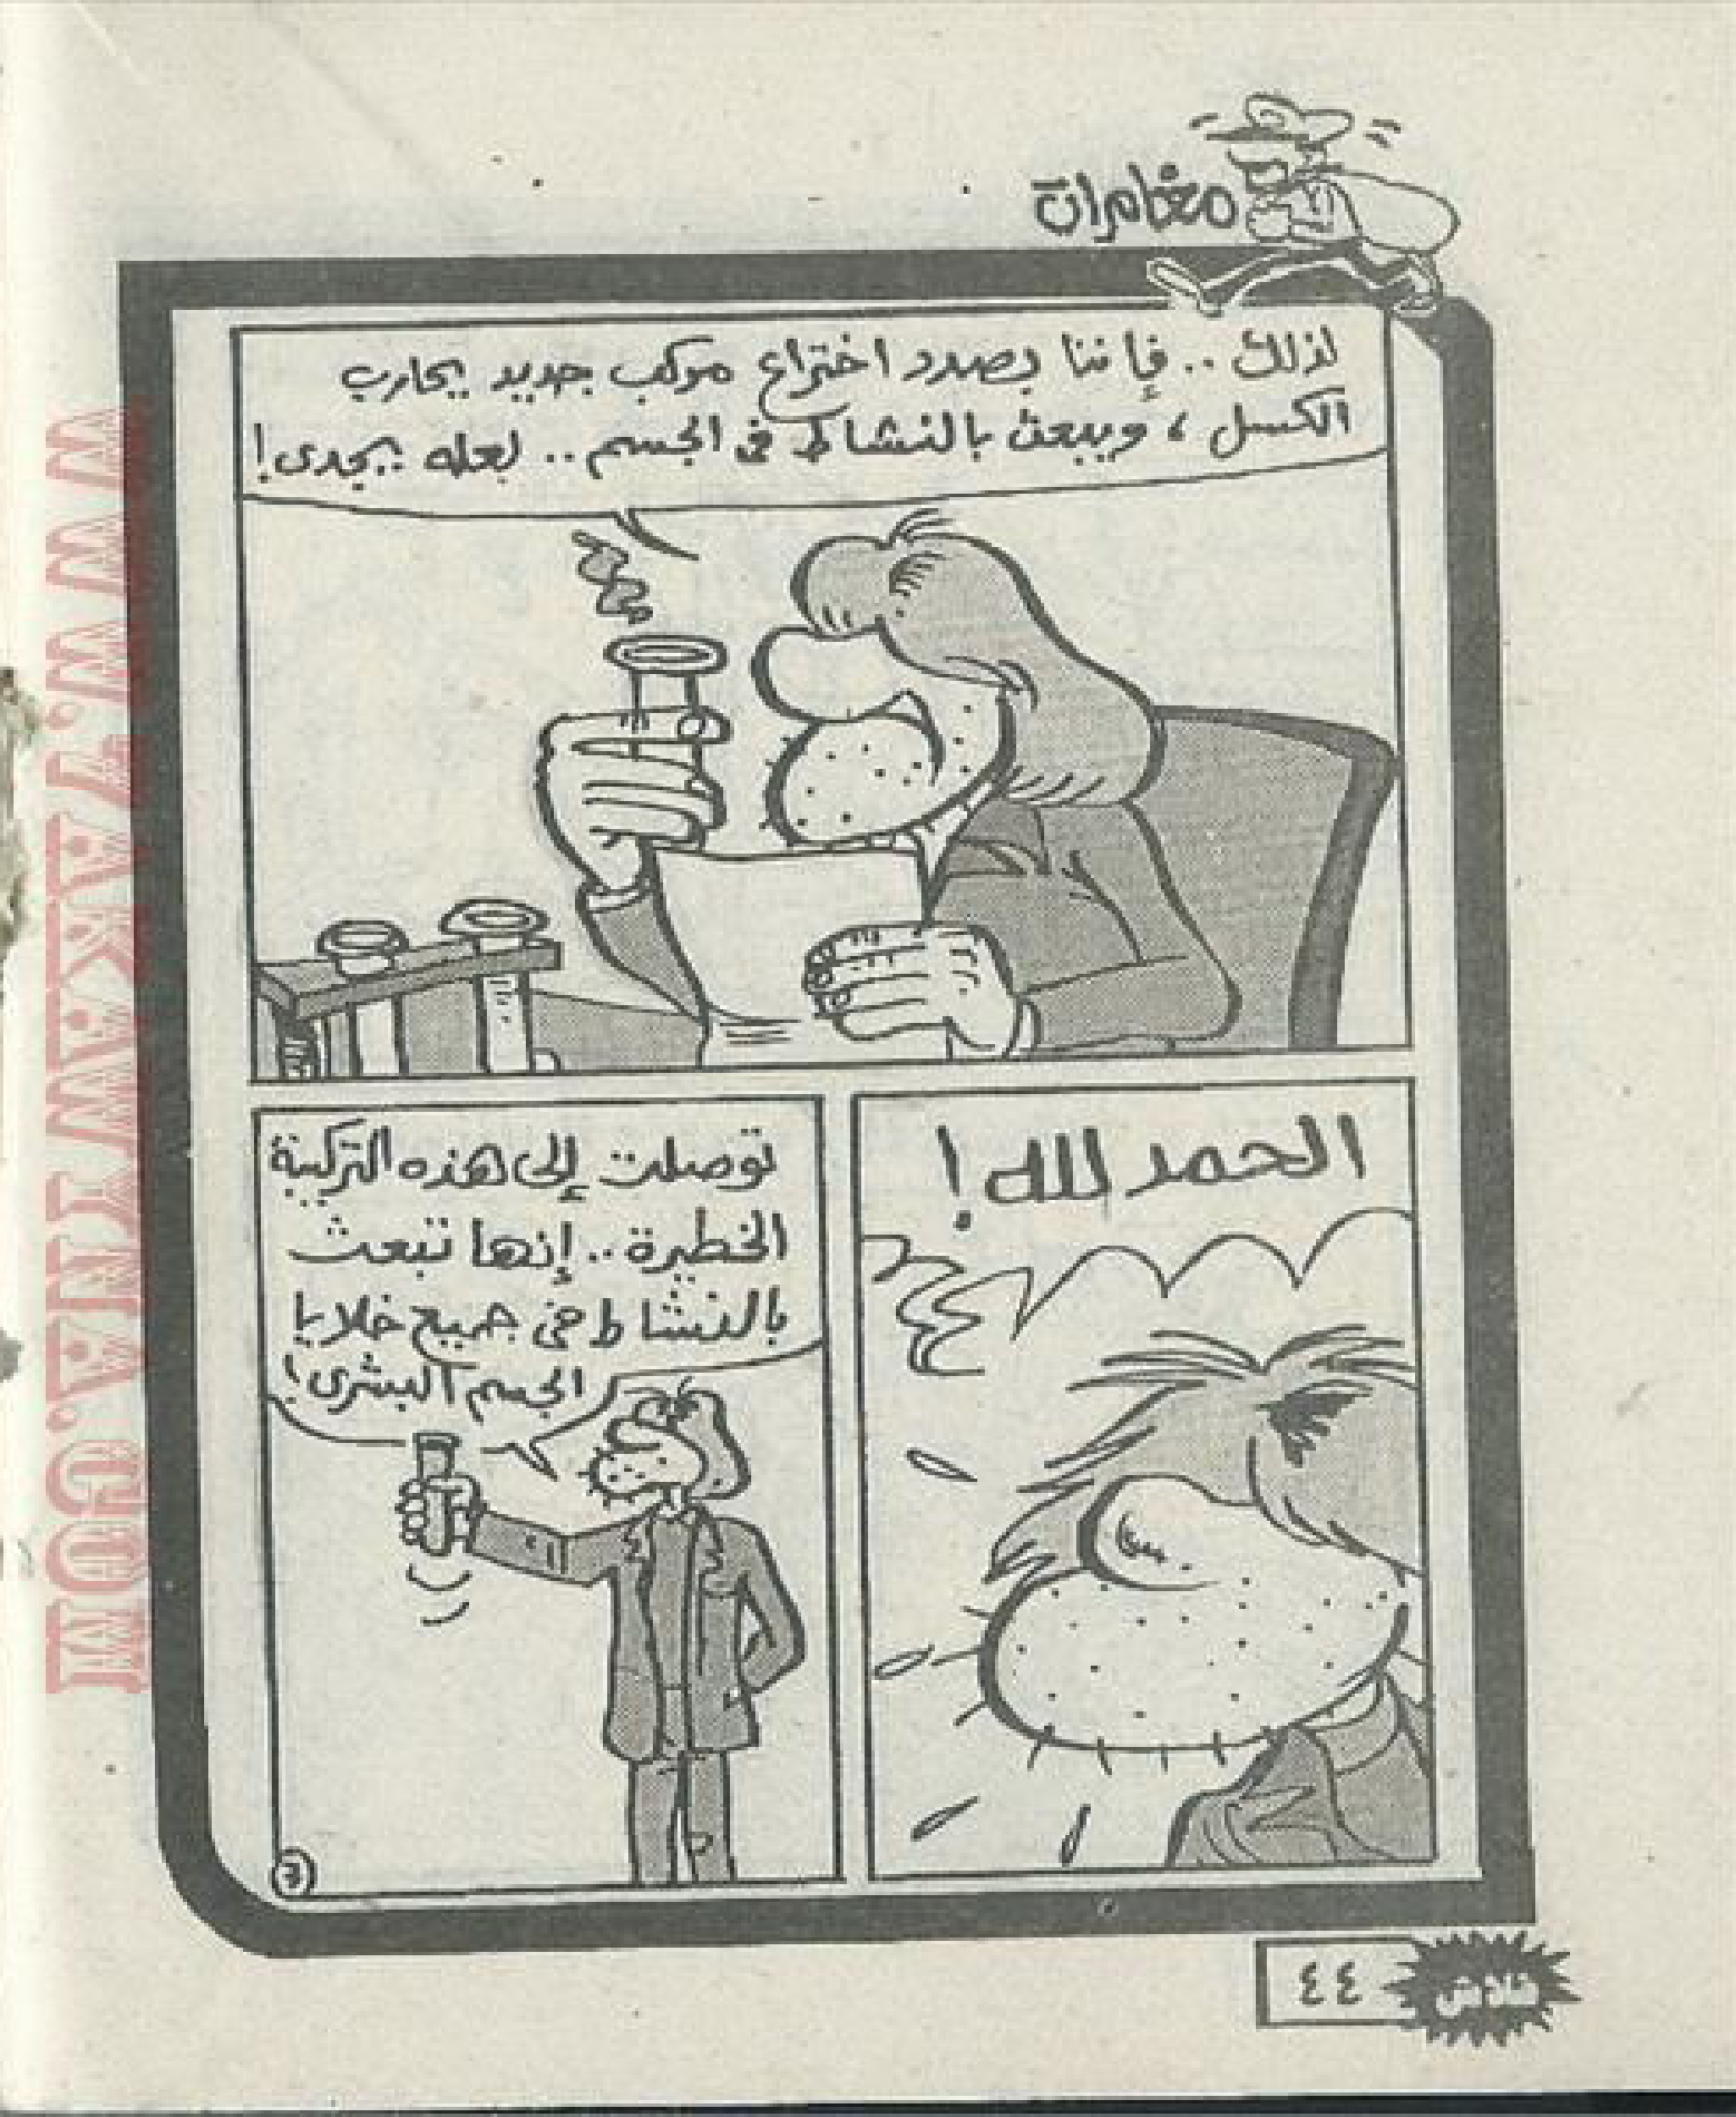 مغامرات
لذلك .. فإننا بصدد اختراع مركب جديد يحارب
الكسل ، ويبعث بالنشاط فى الجسم .. لعله يجدى !
الحمد لله !
توصلت إلى هذه التركيبة
الخطيرة .. إنها تبعث
بالنشاط فى جميع خلايا
الجسم البشرى !
٤٤
فلاش
WWW.ZAKAWYNAA.COM